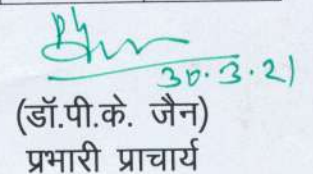 30.3.21
(डॉ.पी.के. जैन)
प्रभारी प्राचार्य